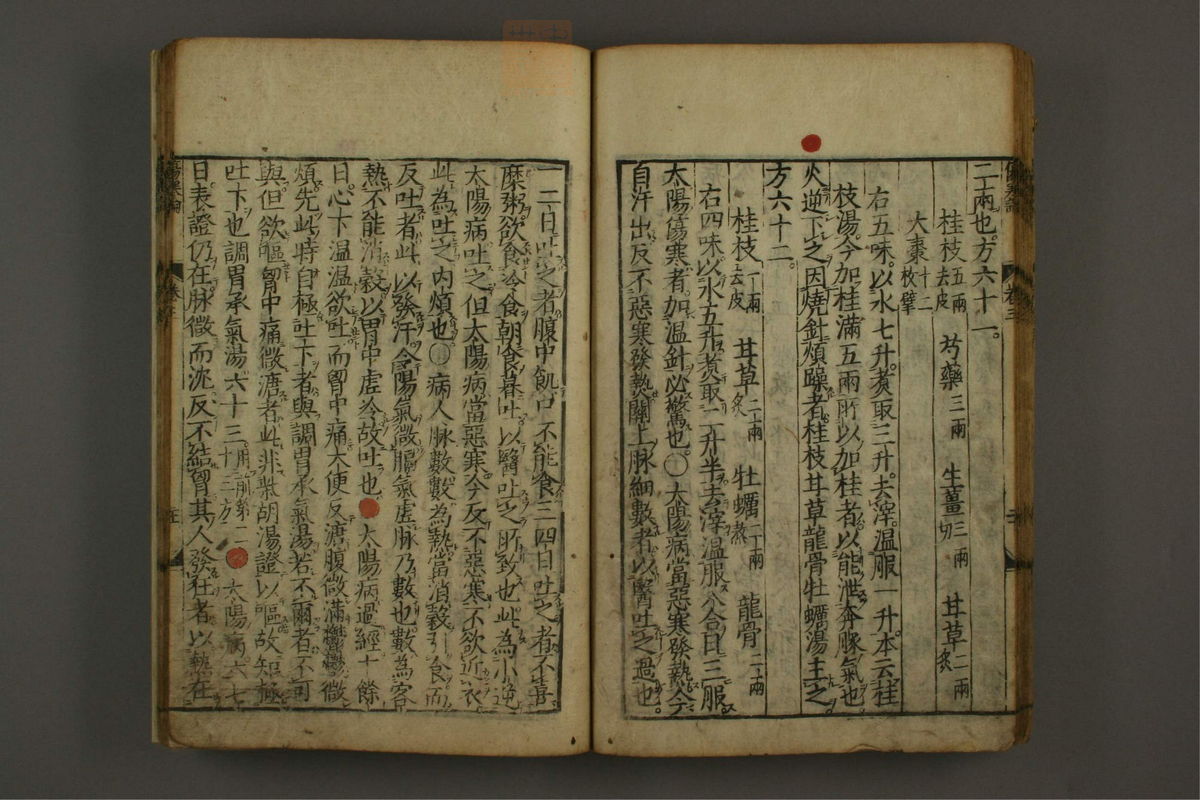 二兩也方六十一。
桂枝五兩去皮 芍藥三兩 生薑三兩切 甘草二兩炙
大棗十二枚擘
右五味。以水七升。煮取三升。去滓。温服一升。本云桂
枝湯。今加桂滿五兩。所以加桂者。以能泄奔豚氣也
火逆下之。因燒針煩躁者。桂枝甘草龍骨牡蠣湯主之。
方六十二。
桂枝一兩去皮 甘草二兩炙 牡蠣二兩熬 龍骨二兩
右四味。以水五升。煮取二升半。去滓。温服八合。日三服
太陽傷寒者。加温針必驚也。○太陽病當惡寒發熱。今
自汗出。反不惡寒發熱。關上脉細數者。以醫吐之過也。
一二日吐之者。腹中飢。口不能食。三四日吐之者。不喜
糜粥。欲食冷食。朝食暮吐。以醫吐之所致也。此為小逆
太陽病吐之。但太陽病當惡寒。今反不惡寒。不欲近衣
此為吐之内煩也。○病人脉數。數為熱。當消穀引食。而
反吐者。此以發汗令陽氣微。膈氣虚。脉乃數也。數為客
熱。不能消穀。以胃中虚冷。故吐也。太陽病過經十餘
日。心下温温欲吐。而胷中痛。大便反溏。腹微滿。鬱鬱微
煩。先此時自極吐下者。與調胃承氣湯。若不爾者。不可
與。但欲嘔。胷中痛。微溏者。此非柴胡湯證。以嘔故知極
吐下也。調胃承氣湯。六十三。用前第三十三方 太陽病六七
日。表證仍在。脉微而沈。反不結胷。其人發狂者。以熱在